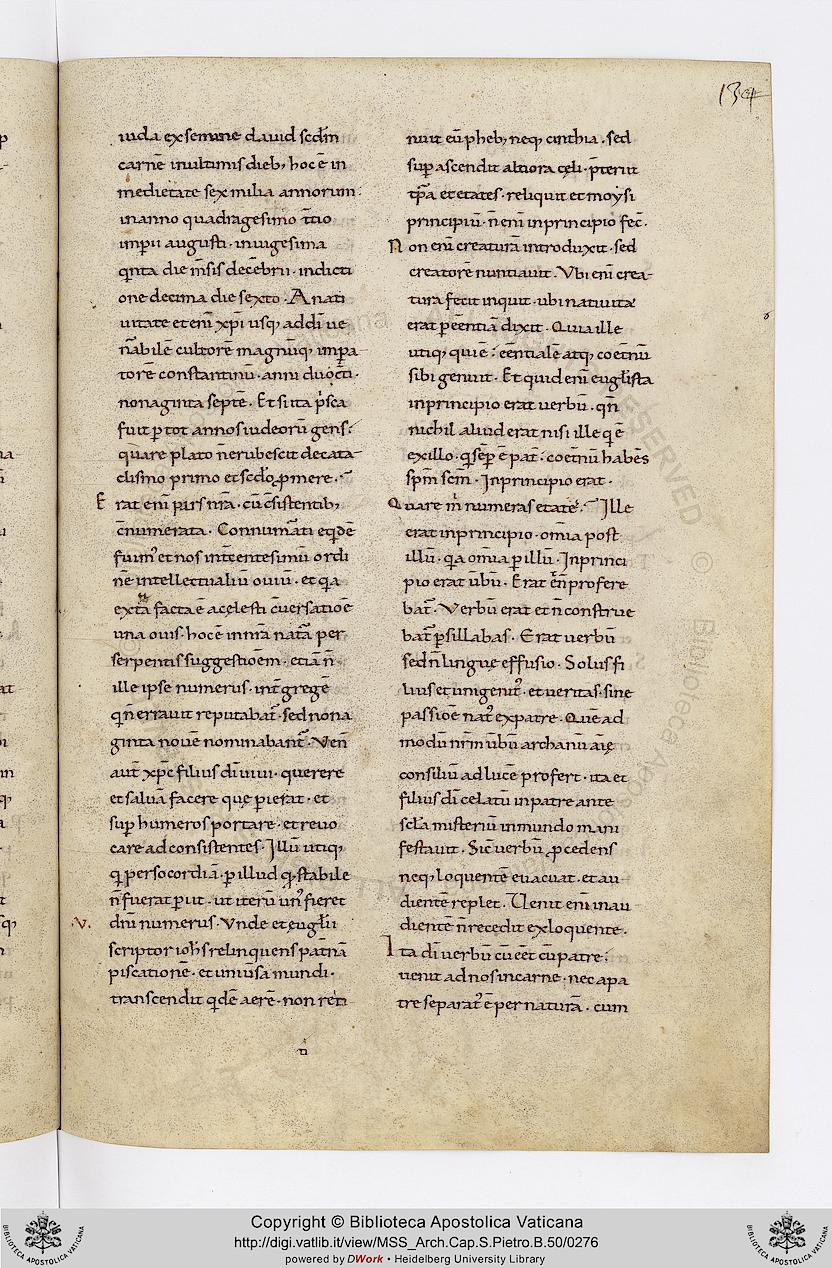 134
iuda ex semine dauid scdm̄
carnē inultimis dieb; hoc ē in
medietate sex milia annorum:
inanno quadragesimo t̄tio
imp̄ii augusti · inuigesima
q̄nta die m̄sis decēbrii · indicti
one decima die sexto · A nati
uitate et eni͞ xp̄i usq; addi͞ ue
n̄abilē cultorē magnūq; imp̄a
torē constantinū · anni ducc̄ti ·
nonaginta septē · Et si ita p̄sca
fuit p̱ tot annos iudeorū gens:
quare plato n̄ erubescit de cata
clismo primo et scdo ꝓmere ·
Erat eni͞ pars nr̄a · cū c̄sistentib;
c̄numerata · Connumāti eqdē
fuim᾽ et nos int̄ centesimū ordi
nē intellectualiū ouiū · et q̄a
extā facta ē acęlesti c̄uersatioē
una ouis · hoc ē in nr̄a natā per
serpentis suggestioēm · etiā n̄
ille ipse numerus · int̄ gregē
q̄n errauit reputabat᾽ · sed nona
ginta nouē nominabant᾽ · Ven̄
aut̄ xp̄c filius di͞ uiui · querere
et saluā facere quę p̱ierat · et
sup̱ humeros portare · et reuo
care ad consistentes · Illū utiq;
q̄ p̱ ersocordiā · p̱ illud q̄ stabile
n̄ fuerat p̱iit · ut iterū un᾽ fieret
·V· dn̄i numerus · Vnde et euglii
scriptor ioh̄s relinquens pat̄nā
piscationē · et uniūsa mundi ·
transcendit q̄dē aerē · non reti
n̄
nuit eū pheb; neq; cinthia · sed
sup̱ ascendit altiora cęli · p̄teriit
tp̄a et etates · reliquit et moysi
principiū · n̄ eni͞ inprincipio fec̄ ·
Non eni͞ creaturā introduxit · sed
creatorē nuntiauit · Vbi eni͞ crea
tura fecit inquit · ubi natiuitæ
erat p̱ eēntiā dixit · Quia ille
utiq; qui ē: eēntialē atq; coet̄nū
sibi genuit · Et quid eni͞ euglista
inprincipio erat uerbū · q̄n
nichil aliud erat nisi ille q̄ ē
ex illo · q̄ sēp̱ ē pat̄: coet̄nū habēs
sp̄m sc̄m · Inprincipio erat ·
Quare m̄ numeras etatē: Ille
erat inprincipio · om̄ia post
illū · q̄a om̄ia p̱ illū · Inprinci
pio erat ūbū · Erat en̄ profere
bat᾽ · Verbū erat et n̄ construe
bat᾽ p̱ sillabas · Erat uerbū
sed n̄ linguę effusio · Solus fi
lius et unigenit᾽ · et ueritas · sine
passioē nat᾽ ex patre · Quē ad
modū nr̄m ūbū archanū aīę
consiliū ad lucē profert · ita et
filius di͞ celatū inpatre ante
sc̄la misteriū inmundo mani
festauit · Sic̄ uerbū ꝓcedens
neq; loquentē euacuat · et au
dientē replet · Uenit eni͞ in au
dientē n̄ recedit ex loquente ·
Ita di͞ uerbū cū eēt cū patre:
uenit ad nos incarne · nec apa
tre separat᾽ ē per naturā · cum
Copyright © Biblioteca Apostolica Vaticana
http://digi.vatlib.it/view/MSS_Arch.Cap.S.Pietro.B.50/0276
powered by DWork • Heidelberg University Library
BIBLIOTECA APOSTOLICA VATICANA
BIBLIOTECA APOSTOLICA VATICANA